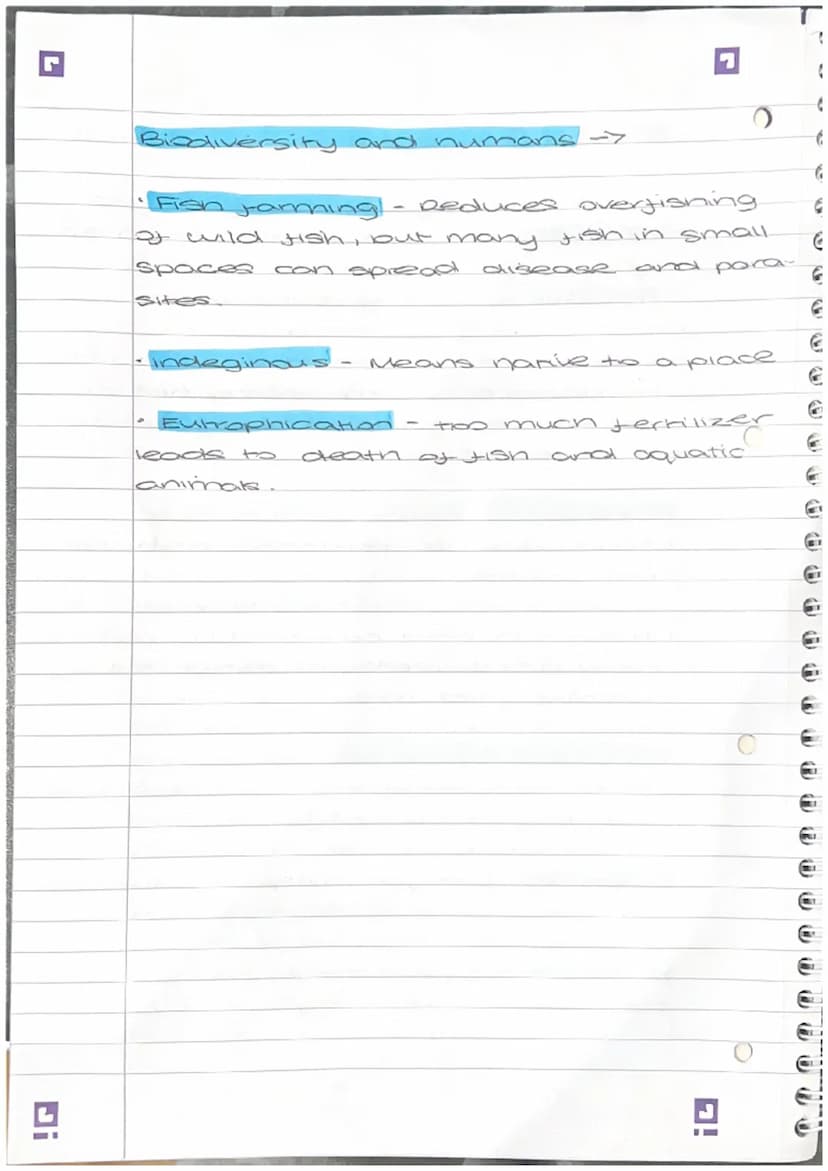 Biodiversity and humans →
· Fish farming - Reduces overfishing
of wild fish, but many fish in small
spaces can spread disease and para-
sites.
· Indeginous - Means native to a place
· Eutrophication - too much fertilizer
leads to death of fish and aquatic
animals.